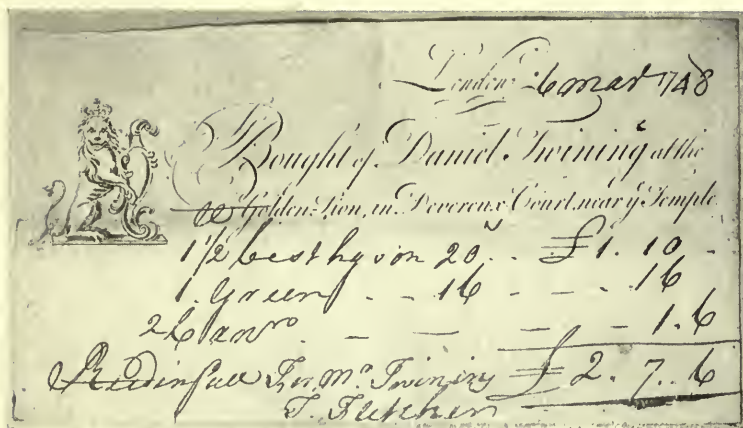 London 6 mar 1748
Bought of Daniel Twining at the
Golden Lion, in Devereux Court, near yᵉ Temple
1½ best hyson 20 .. £1. 10 -
1. Green - - 16 - - - 16
- - - - - 1. 6
Rec'd in full For Mr. Twining £2. 7. 6
T. Fletcher